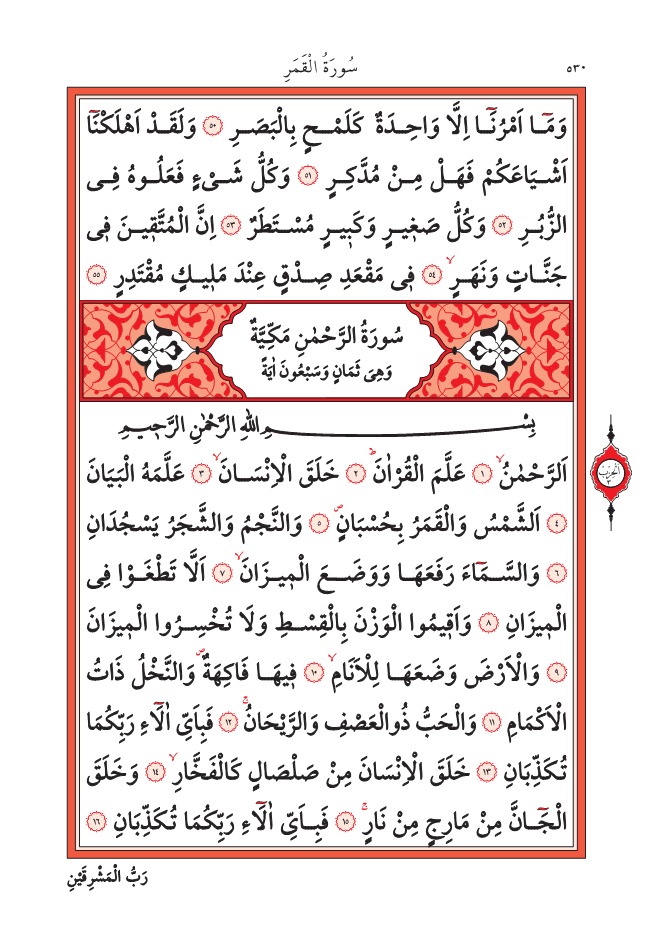 ٥٣٠
سُورَةُ الْقَمَرِ
وَمَٓا اَمْرُنَٓا اِلَّا وَاحِدَةٌ كَلَمْحٍ بِالْبَصَرِ ٥٠ وَلَقَدْ اَهْلَكْنَٓا
اَشْيَاعَكُمْ فَهَلْ مِنْ مُدَّكِرٍ ٥١ وَكُلُّ شَيْءٍ فَعَلُوهُ فِى
الزُّبُرِ ٥٢ وَكُلُّ صَغٖيرٍ وَكَبٖيرٍ مُسْتَطَرٌ ٥٣ اِنَّ الْمُتَّقٖينَ فٖى
جَنَّاتٍ وَنَهَرٍۙ ٥٤ فٖى مَقْعَدِ صِدْقٍ عِنْدَ مَلٖيكٍ مُقْتَدِرٍ ٥٥
سُورَةُ الرَّحْمٰنِ مَكِّيَّةٌ
وَهِىَ ثَمَانٍ وَسَبْعُونَ اٰيَةً
بِسْمِ اللّٰهِ الرَّحْمٰنِ الرَّحٖيمِ
اَلرَّحْمٰنُۙ ١ عَلَّمَ الْقُرْاٰنَۜ ٢ خَلَقَ الْاِنْسَانَۙ ٣ عَلَّمَهُ الْبَيَانَ
٤ اَلشَّمْسُ وَالْقَمَرُ بِحُسْبَانٍۖ ٥ وَالنَّجْمُ وَالشَّجَرُ يَسْجُدَانِ
٦ وَالسَّمَٓاءَ رَفَعَهَا وَوَضَعَ الْمٖيزَانَۙ ٧ اَلَّا تَطْغَوْا فِى
الْمٖيزَانِ ٨ وَاَقٖيمُوا الْوَزْنَ بِالْقِسْطِ وَلَا تُخْسِرُوا الْمٖيزَانَ
٩ وَالْاَرْضَ وَضَعَهَا لِلْاَنَامِۙ ١٠ فٖيهَا فَاكِهَةٌۖ وَالنَّخْلُ ذَاتُ
الْاَكْمَامِ ١١ وَالْحَبُّ ذُوالْعَصْفِ وَالرَّيْحَانُۚ ١٢ فَبِاَىِّ اٰلَٓاءِ رَبِّكُمَا
تُكَذِّبَانِ ١٣ خَلَقَ الْاِنْسَانَ مِنْ صَلْصَالٍ كَالْفَخَّارِۙ ١٤ وَخَلَقَ
الْجَٓانَّ مِنْ مَارِجٍ مِنْ نَارٍۚ ١٥ فَبِاَىِّ اٰلَٓاءِ رَبِّكُمَا تُكَذِّبَانِ ١٦
رَبُّ الْمَشْرِقَيْنِ